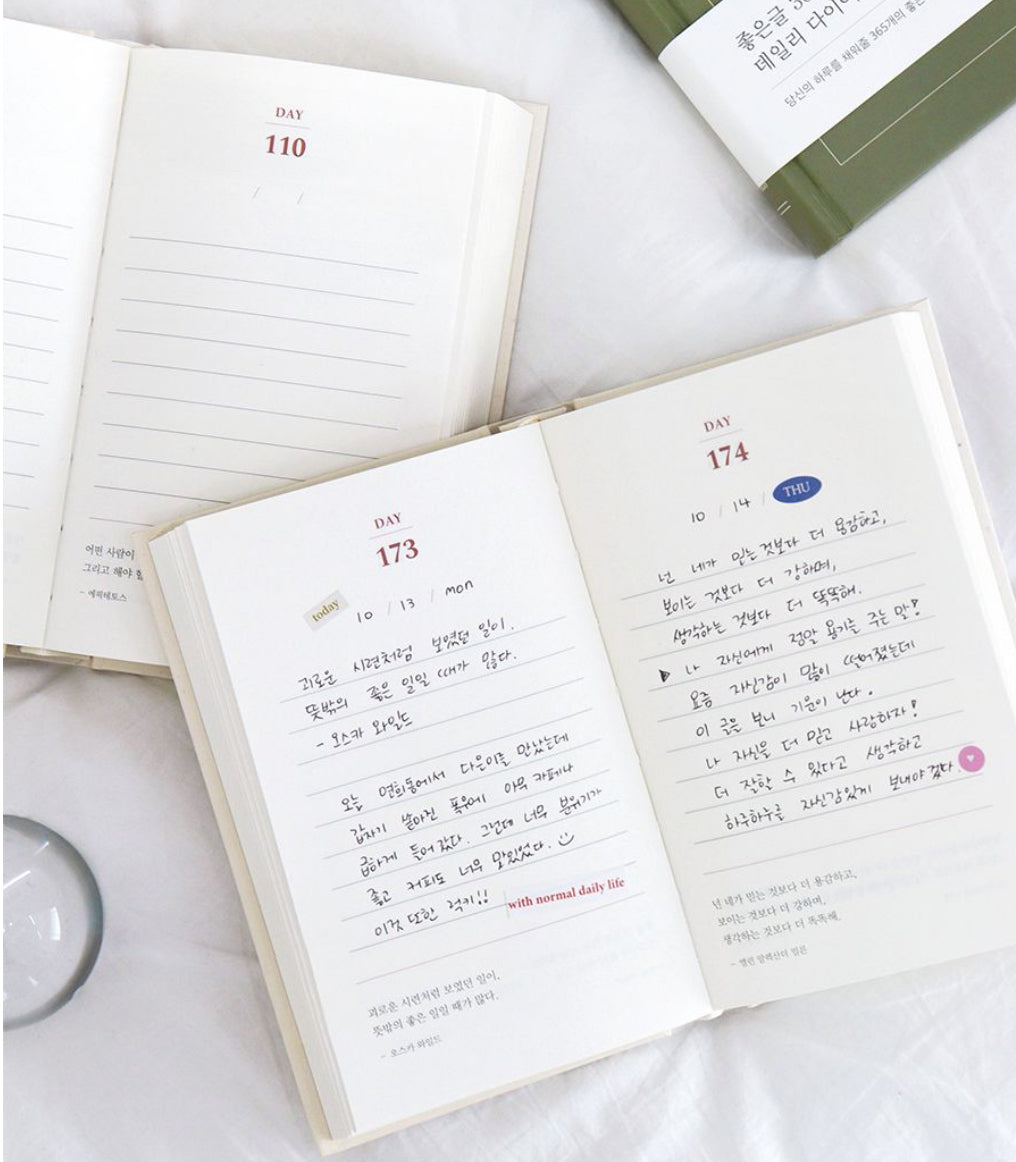 DAY
110
/ /
어떤 사람이
그리고 해야 할
- 에픽테토스
좋은글
데일리 다이
당신의 하루를 채워줄 365개의 좋은
DAY
173
today
10 / 13 / mon
괴로운 시련처럼 보였던 일이.
뜻밖의 좋은 일일 때가 많다.
- 오스카 와일드
오늘 연희동에서 다은이를 만났는데
갑자기 쏟아진 폭우에 아무 카페나
급하게 들어갔다. 그런데 너무 분위기가
좋고 커피도 너무 맛있었다.
이것 또한 럭키!!
with normal daily life
괴로운 시련처럼 보였던 일이,
뜻밖의 좋은 일일 때가 많다.
- 오스카 와일드
DAY
174
10 / 14 / THU
넌 네가 믿는 것보다 더 용감하고,
보이는 것보다 더 강하며,
생각하는 것보다 더 똑똑해.
나 자신에게 정말 용기를 주는 말!
요즘 자신감이 많이 떨어졌는데
이 글을 보니 기운이 난다.
나 자신을 더 믿고 사랑하자!
더 잘할 수 있다고 생각하고
하루하루를 자신감있게 보내야겠다.
넌 네가 믿는 것보다 더 용감하고,
보이는 것보다 더 강하며,
생각하는 것보다 더 똑똑해.
- 앨런 알렉산더 밀른